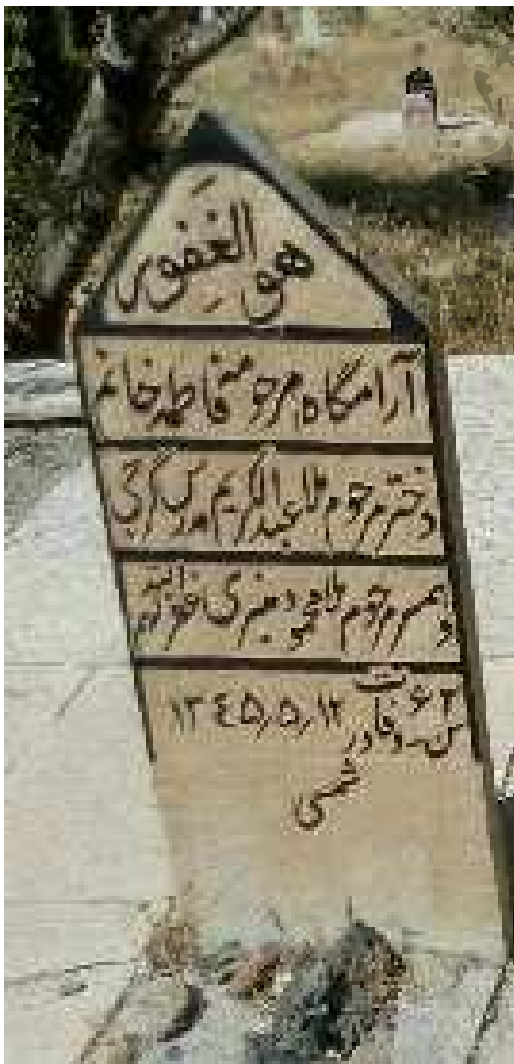 هو الغَفور
آرامگاه مرحومه فاطمه خانم
دختر مرحوم ملا عبدالکریم مدرس گرجی
و همسر مرحوم ملا محمود منبری غفرالله
سن ۶۲ وفات در ۱۳٤۵٫۵٫۱۲
شمسی